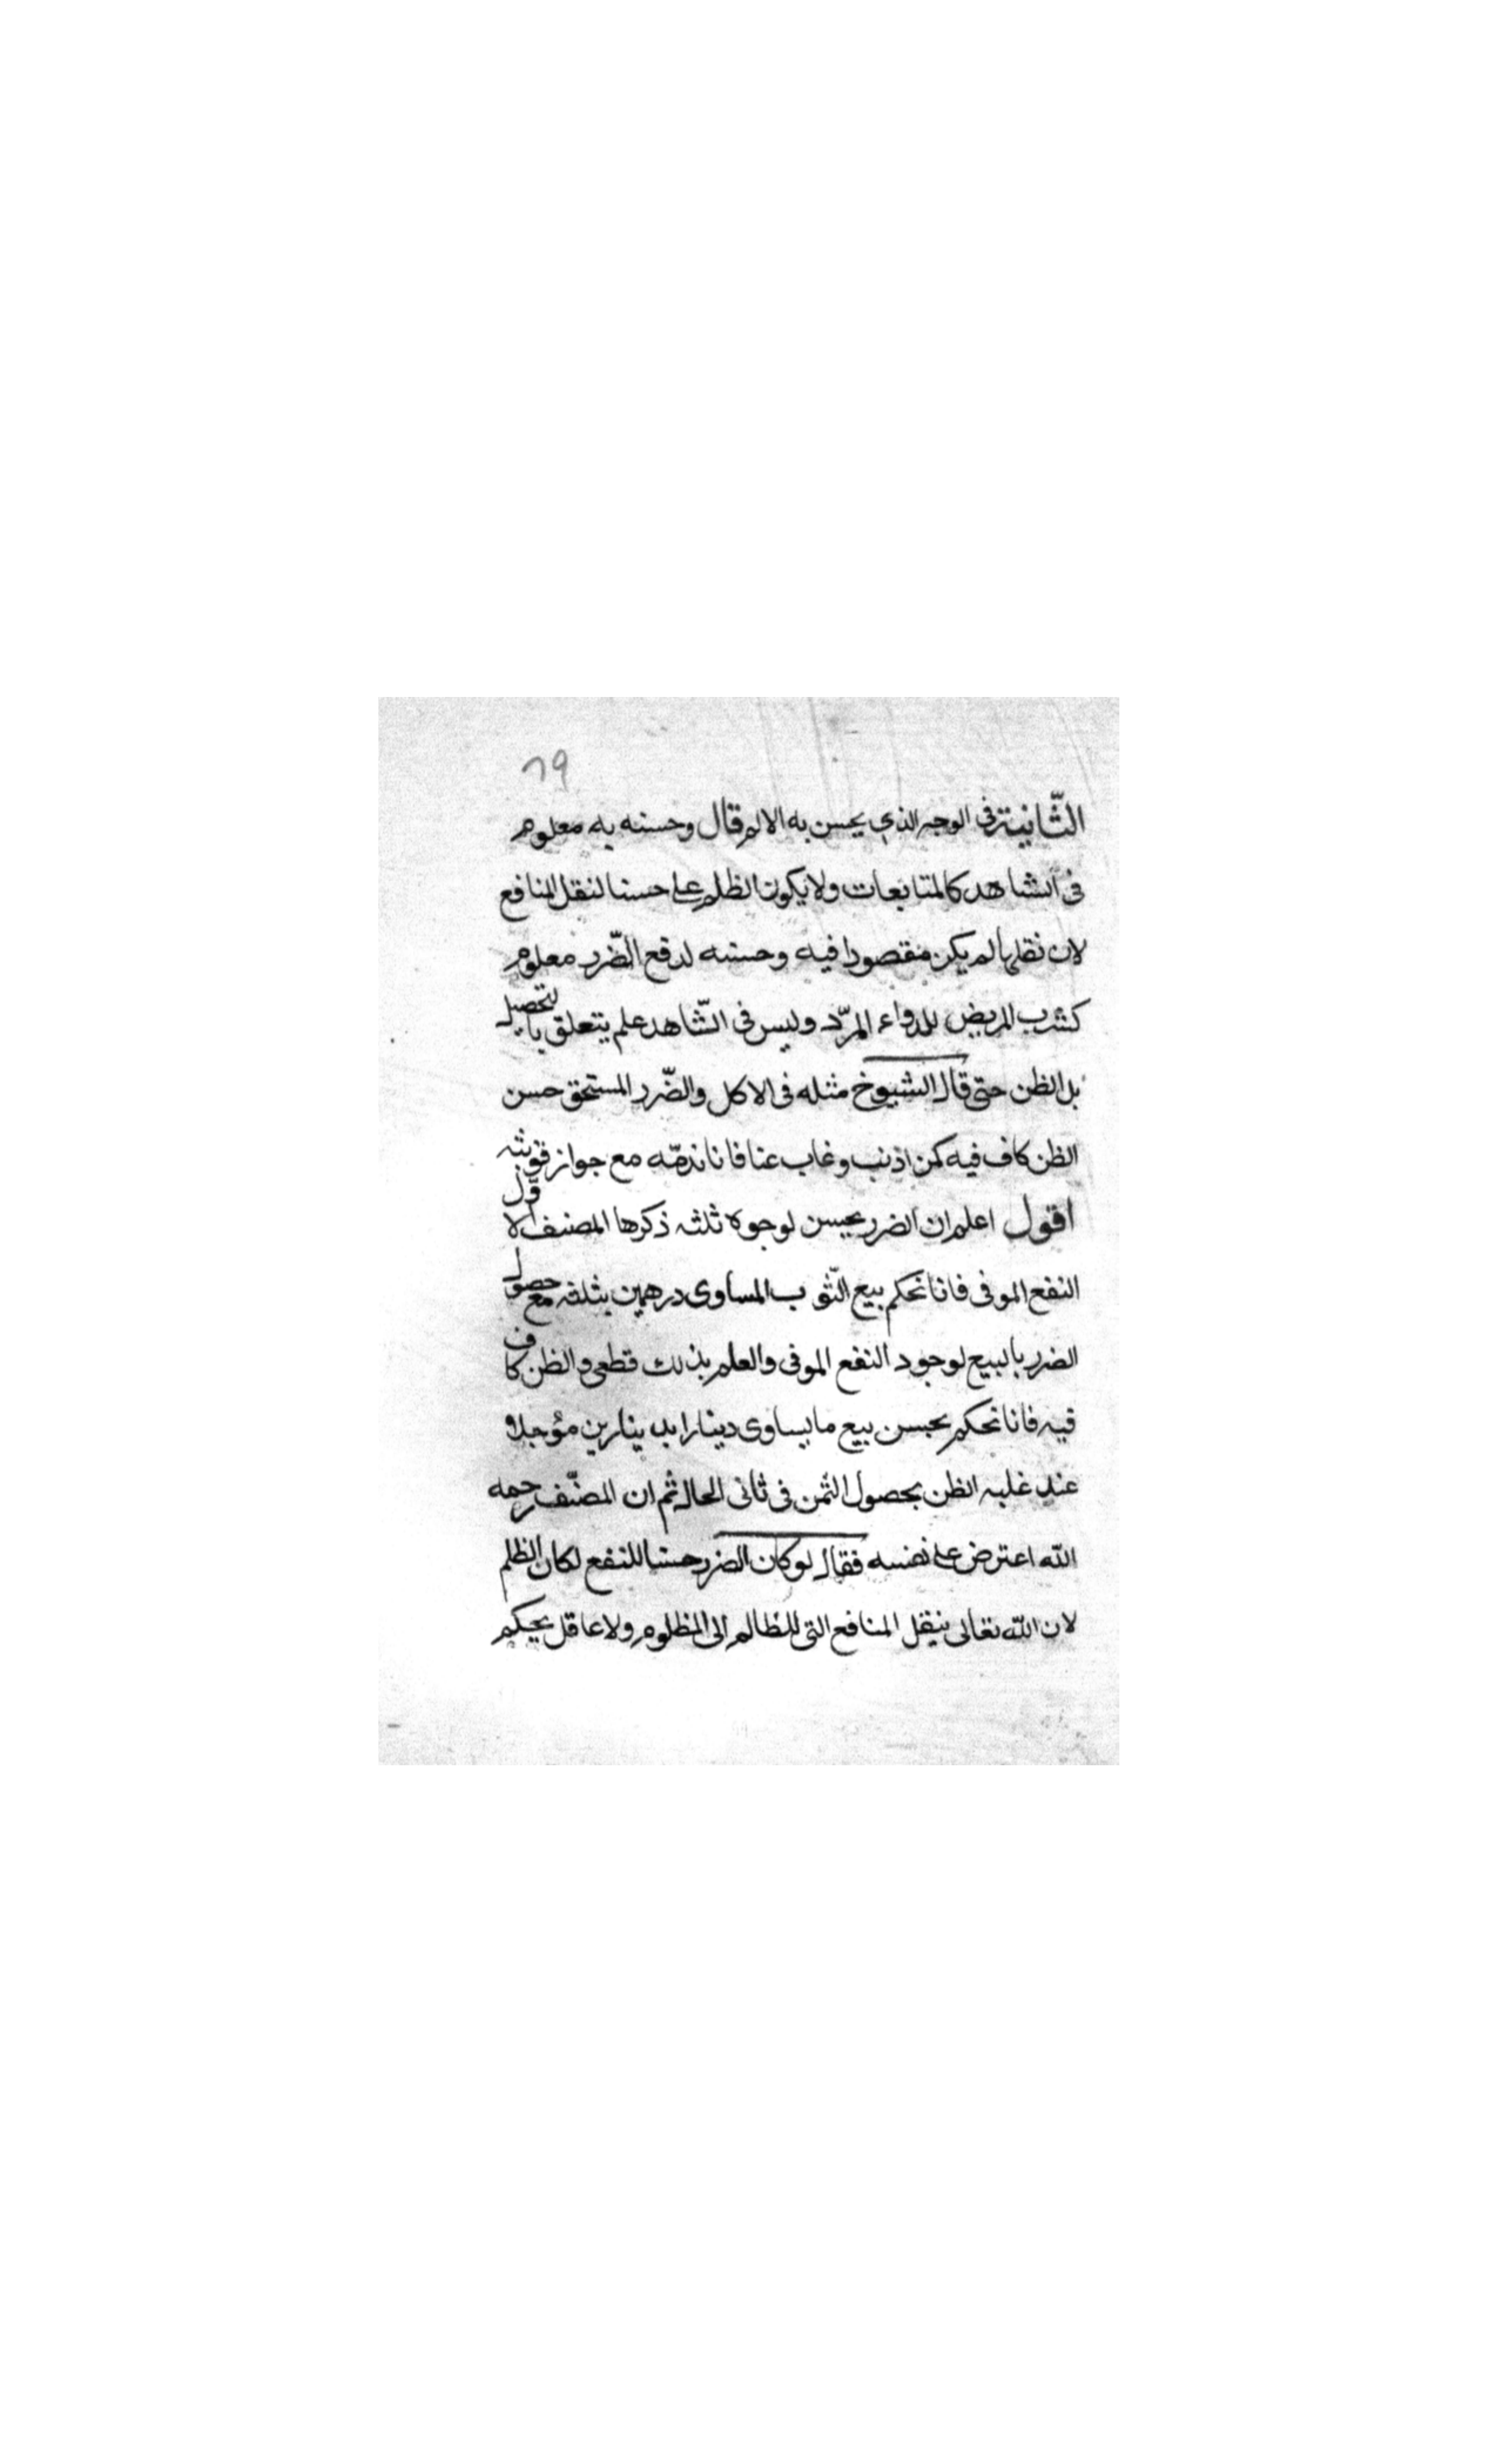 ٦٩
الثّانية في الوجه الذي يحسن به الالم قال وحسنه به معلوم
في الشاهد كالمتابعات ولا يكون الظلم علي حسنا لنقل المنافع
لان نقلها لم يكن مقصودا فيه وحسنه لدفع الضّرر معلوم
كشرب المريض للدواء المرّ وليس في الشّاهد علم يتعلق بالتحصيل
بل الظن حتى قال الشيوخ مثله في الاكل والضّرر المستحق حسن
الظن كاف فيه كمن اذنب وغاب عنا فانا نذمّه مع جواز توبته
اقول اعلم ان الضرر يحسن لوجوه ثلثه ذكرها المصنف الاوّل
النفع الموفى فانا نحكم ببيع الثّوب المساوى درهمين بثلثه مع حصول
الضرر بالبيع لوجود النفع الموفى والعلم بذلك قطعى والظن كاف
فيه فانا نحكم بحسن بيع ما يساوى دينارا بدينارين مؤجلا
عند غلبه الظن بحصول الثمن فى ثانى الحال ثم ان المصنّف رحمه
الله اعترض على نفسه فقال لو كان الضرر حسنا للنفع لكان الظلم
لان الله تعالى ينقل المنافع التى للظالم الى المظلوم ولا عاقل يحكم